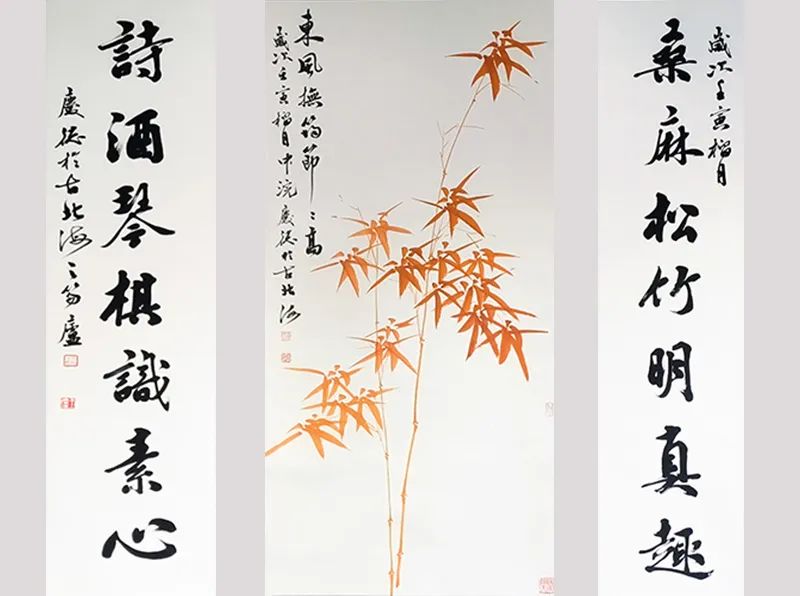 桑麻松竹明真趣
歲次壬寅榴月
東風撫筠節〻高
歲次壬寅榴月中浣慶德於古北海
詩酒琴棋識素心
慶德於古北海之筠廬